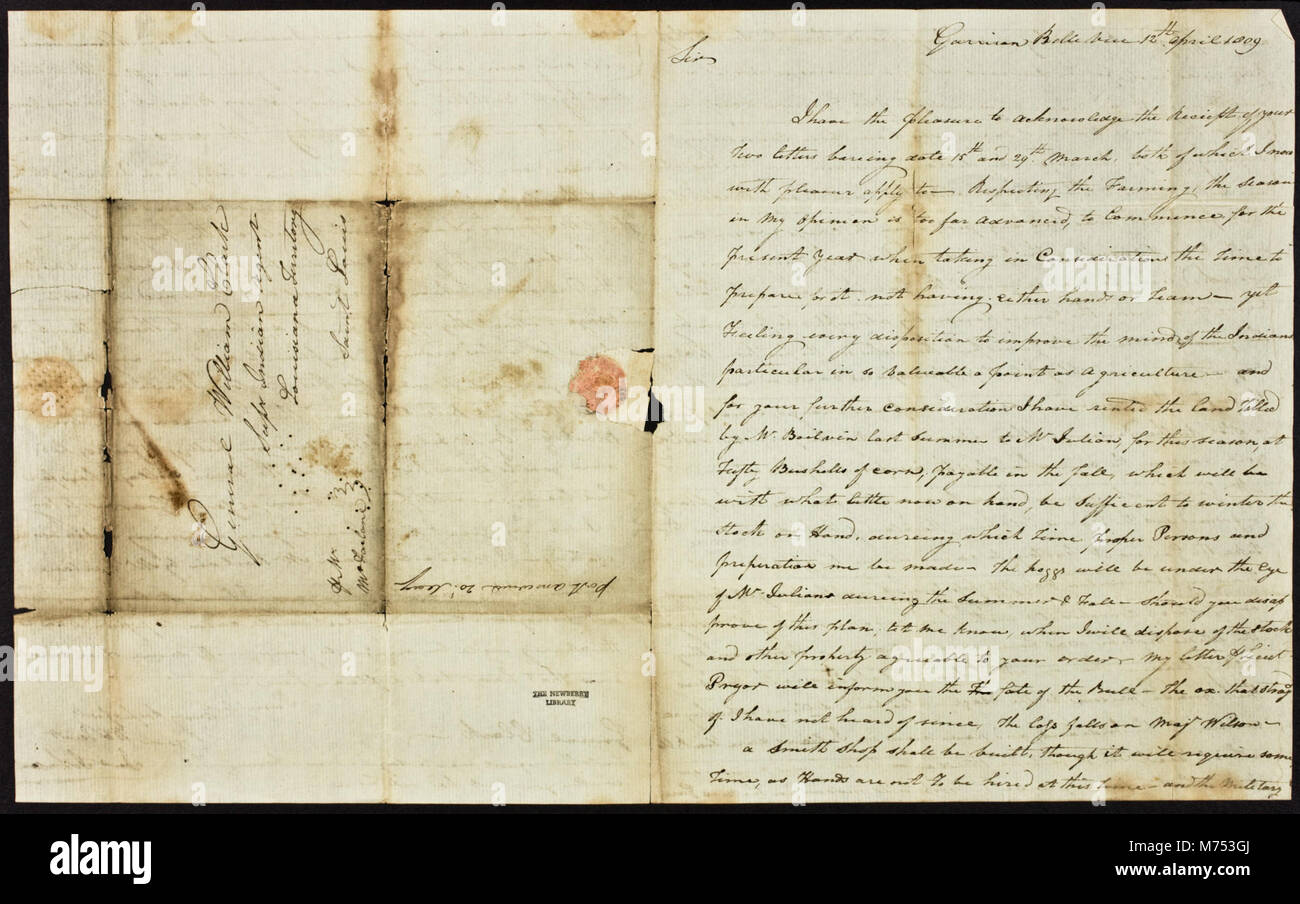 General William Clark
Supr Indian agent
Louisiana Territory
Saint Louis
Mr
McFarlane
THE NEWBERRY
LIBRARY
Garrison Belle Vue 12th April 1809
Sir
I have the pleasure to acknowledge the Reciept of your
two letters bareing date 15th and 29th March, both of which I now
with pleasur apply to — Respecting the Farming, the Season
in my opinion is too far advanced, to Commence for the
present year when taking in Consideration the time to
prepare for it. not having either hands or team — yet
Feeling every disposition to improve the minds of the Indians
particular in so valuable a point as agriculture — and
for your further consideration I have rented the land tilled
by Mr Boilvin last Summer to Mr Julian, for this season, at
Fifty Bushells of corn, payable in the fall, which will be
with whats little now on hand, be Sufficent to winter the
Stock on Hand, dureing which time proper Persons and
preperation me be made — The hoggs will be under the Eye
of Mr Julians dureing the Summer & Fall — Should you disap
prove of this plan, let me know, when I will dispose of the stock
and other property agreeable to your order — My letter pr Lieut
Pryor will inform you the fate of the Bull — The ox that stray
d I have not heard of since, the loss falls on Majr Wilson —
a Smith Shop shall be built, though it will require some
time, as Hands are not to be hired at this time — and the Military
alamy
Image ID: M753GJ
www.alamy.com